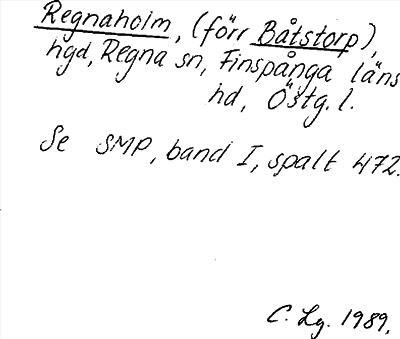 Regnaholm, (förr Båtstorp),
hgd, Regna sn, Finspånga läns
hd, Östg. l.
Se SMP, band I, spalt 472.
C. Lg. 1989.